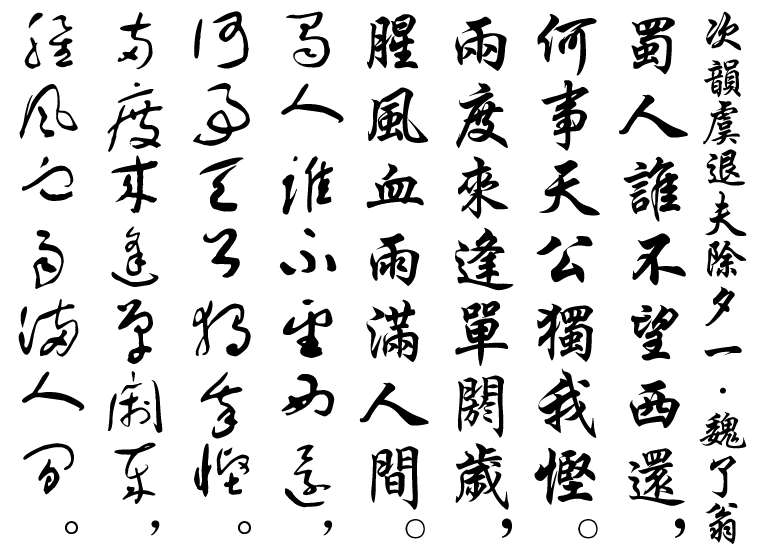 次韻虞退夫除夕一·魏了翁
蜀人誰不望西還，
何事天公獨我慳。
兩度來逢單閼歲，
腥風血雨滿人間。
蜀人誰不望西還，
何事天公獨我慳。
兩度來逢單閼歲，
腥風血雨滿人間。